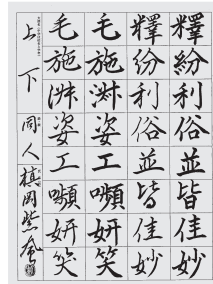 釋紛利俗並皆佳妙
釋紛利俗並皆佳妙
毛施淑姿工嚬妍笑
毛施淑姿工嚬妍笑
上下
同人